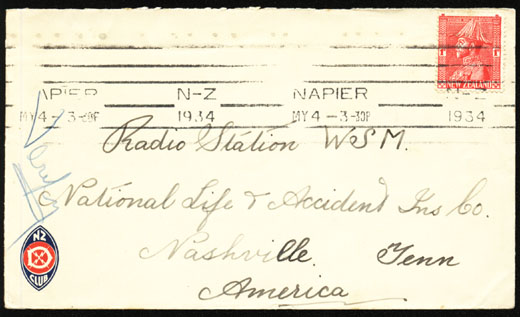 NEW ZEALAND
NAPIER N-Z NAPIER N-Z
MY 4 - 3-30P 1934 MY 4 - 3-30P 1934
Radio Station W.S.M.
National Life & Accident Ins Co.
Nashville. Tenn
America
NZ
DX
CLUB